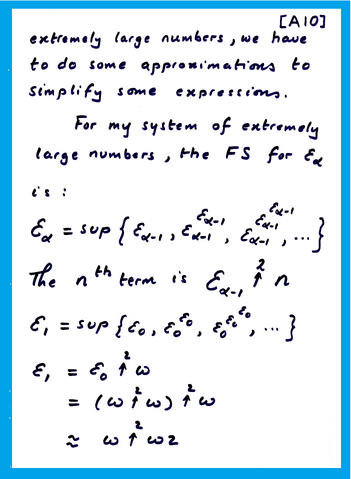 [A10]
extremely large numbers, we have
to do some approximations to
simplify some expressions.
For my system of extremely
large numbers, the FS for ε_α
is :
ε_α = sup { ε_{α-1}, ε_{α-1}^{ε_{α-1}}, ε_{α-1}^{ε_{α-1}^{ε_{α-1}}}, ... }
The n^th term is ε_{α-1} ↑^2 n
ε_1 = sup { ε_0, ε_0^{ε_0}, ε_0^{ε_0^{ε_0}}, ... }
ε_1 = ε_0 ↑^2 ω
= (ω ↑^2 ω) ↑^2 ω
≈ ω ↑^2 ω2